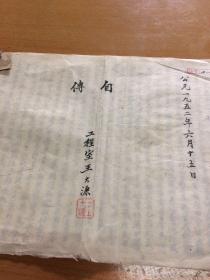 公元一九五二年六月十五日
自傳
工程室王大源